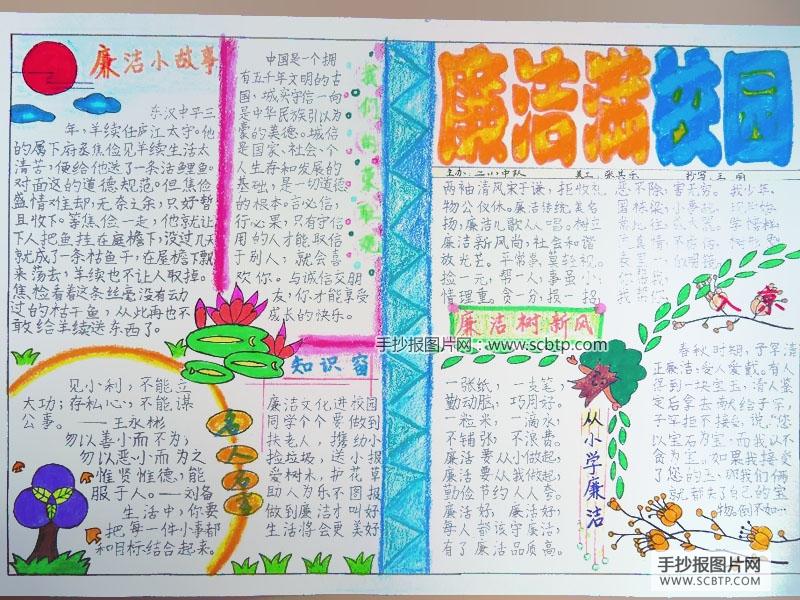 廉洁小故事
东汉中平三
年,羊续任庐江太守。他
的属下府丞焦俭见羊续生活太
清苦,便给他送了一条活鲤鱼。
对面这的道德规范。但焦俭
盛情难却,无奈之余,只好暂
且收下。等焦俭一走,他就让
下人把鱼挂在庭檐下,没过几天
就成了一条枯鱼干,在屋檐下飘
来荡去,羊续也不让人取掉。
焦检看着这条丝毫没有动
过的枯干鱼,从此再也不
敢给羊续送东西了。
中国是一个拥
有五千年文明的古
国,城实守信一向
是中华民族引以为
豪的美德。城信
是国家、社会、个
人生存和发展的
基础,是一切道德
的根本。言必信,
行必果,只有守信
用的人才能取信
于别人,就会喜
欢你。与诚信交朋
友,你才能享受
成长的快乐。
我们的荣耻观
见小利,不能立
大功;存私心,不能谋
公事。——王永彬
勿以善小而不为;
勿以恶小而为之
惟贤惟德,能
服于人。——刘备
生活中,你要
把每一件小事都
和目标结合起来。
名人名言
知识窗
廉洁文化进校园
同学个个要做到
扶老人,携幼小
捡垃圾,送小报
爱树木,护花草
助人为乐不图报
做到廉洁才叫好
生活将会更美好
廉洁满校园
两袖清风宋于谦,拒收礼
物公仪休。廉洁传统美名
扬;廉洁儿歌人人唱。树立
廉洁新风尚,社会和谐
放光芒。平常事,莫轻视,
捡一元,帮一人,事虽小
情理重。
廉洁树新风
一张纸,一支笔,
勤动脑,巧用好。
一粒米,一滴水,
不铺张,不浪费。
廉洁要从小做起,
廉洁要从我做起,
勤俭节约人人夸。
廉洁好,廉洁好,
每人都该守廉洁,
有了廉洁品质高。
从小学廉洁
春秋时期,子罕清
正廉洁,受人爱戴。有人
得到一块宝玉,请人鉴
定后拿去献给子罕,
子罕拒不接受,说:"您
以宝石为宝,而我以不
贪为宝。如果我接受
了您的玉,那我们俩
就都失去了自己的宝
物。倒不如…
手抄报图片网:www.scbtp.com
手抄报图片网
WWW.SCBTP.COM